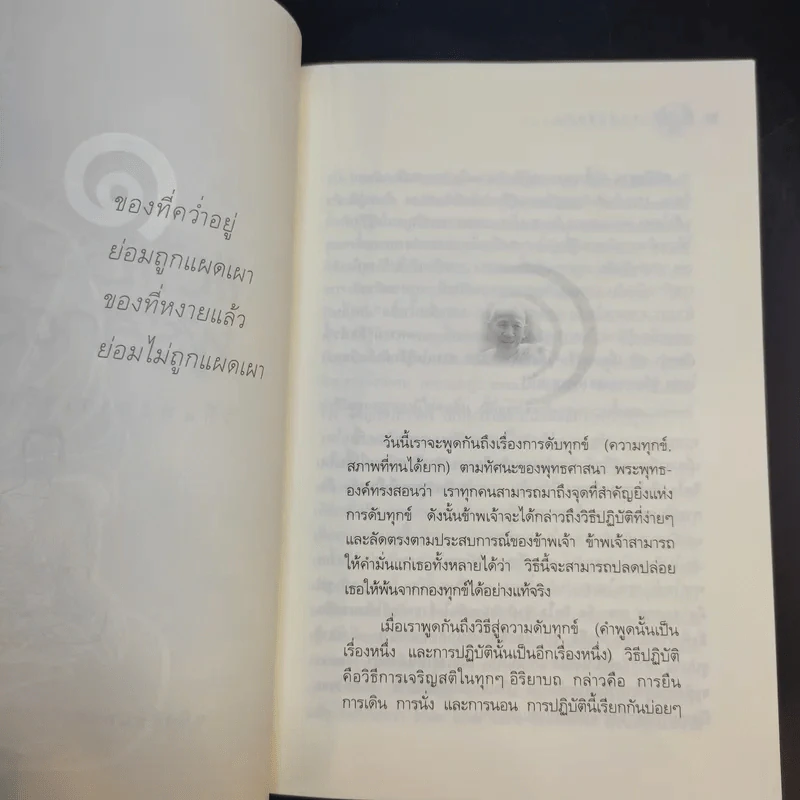 ของที่คว่ำอยู่
ย่อมถูกแผดเผา
ของที่หงายแล้ว
ย่อมไม่ถูกแผดเผา
วันนี้เราจะพูดกันถึงเรื่องการดับทุกข์ (ความทุกข์.
สภาพที่ทนได้ยาก) ตามทัศนะของพุทธศาสนา พระพุทธ-
องค์ทรงสอนว่า เราทุกคนสามารถมาถึงจุดที่สำคัญยิ่งแห่ง
การดับทุกข์ ดังนั้นข้าพเจ้าจะได้กล่าวถึงวิธีปฏิบัติที่ง่ายๆ
และลัดตรงตามประสบการณ์ของข้าพเจ้า ข้าพเจ้าสามารถ
ให้คำมั่นแก่เธอทั้งหลายได้ว่า วิธีนี้จะสามารถปลดปล่อย
เธอให้พ้นจากกองทุกข์ได้อย่างแท้จริง
เมื่อเราพูดกันถึงวิธีสู่ความดับทุกข์ (คำพูดนั้นเป็น
เรื่องหนึ่ง และการปฏิบัตินั้นเป็นอีกเรื่องหนึ่ง) วิธีปฏิบัติ
คือวิธีการเจริญสติในทุกๆ อิริยาบถ กล่าวคือ การยืน
การเดิน การนั่ง และการนอน การปฏิบัตินี้เรียกกันบ่อยๆ